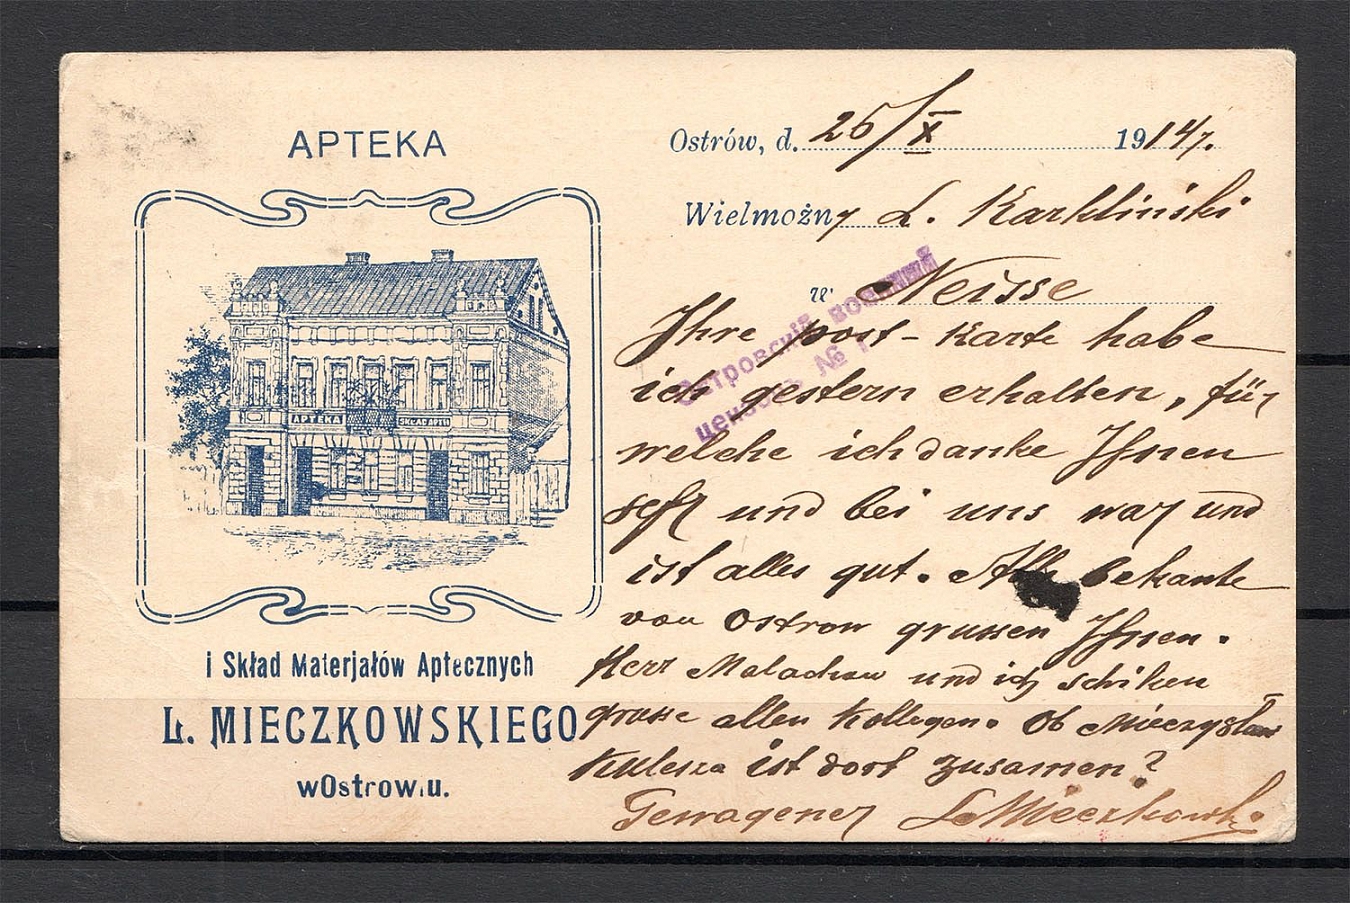 APTEKA
APTEKA
SKŁAD APTE
i Skład Materjałów Aptecznych
Ł. MIECZKOWSKIEGO
w Ostrowiu.
Ostrów, d. 26/X 1914 r.
Wielmożny L. Karkliński
w Neisse
Островскій военный
цензоръ №
Ihre post-karte habe
ich gestern erhalten, für
welche ich danke Ihnen
sehr und bei uns war und
ist alles gut. Alle bekante
von Ostrow grussen Ihnen.
Herr Malachow und ich schiken
grusse allen Kollegen. Ob Mieczysław
Kulesza ist dort zusamen?
Gewagener Ł Mieczkowski.